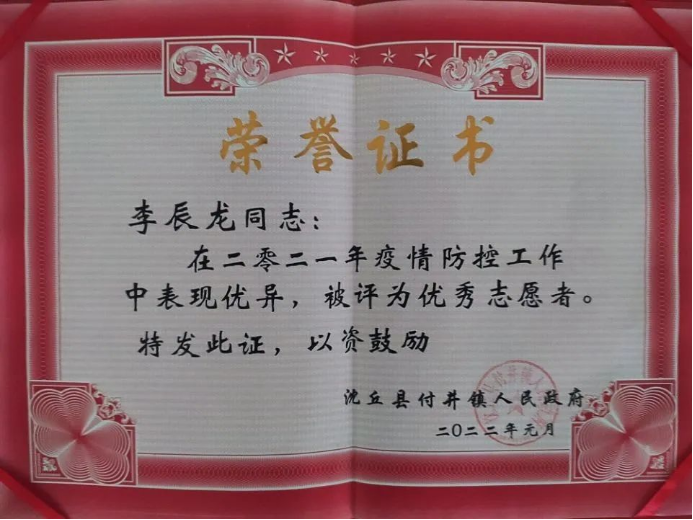 荣誉证书
李辰龙同志：
在二零二一年疫情防控工作
中表现优异，被评为优秀志愿者。
特发此证，以资鼓励
沈丘县付井镇人民政府
二〇二二年元月